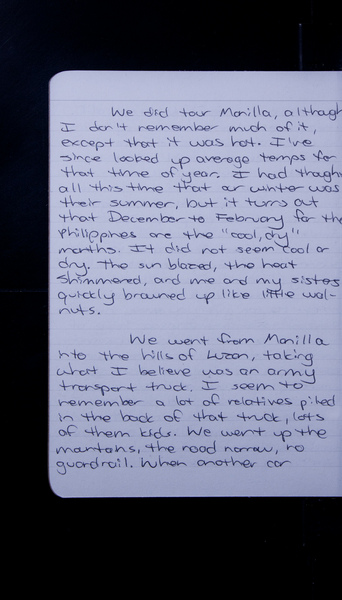 We did tour Manilla, although
I don't remember much of it,
except that it was hot. I've
since looked up average temps for
that time of year. I had though
all this time that our winter was
their summer, but it turns out
that December to February for the
Philippines are the "cool, dry"
months. It did not seem cool or
dry. The sun blazed, the heat
shimmered, and me and my sister
quickly browned up like little wal-
nuts.
We went from Manilla
into the hills of Luzon, taking
what I believe was an army
transport truck. I seem to
remember a lot of relatives piled
in the back of that truck, lots
of them kids. We went up the
mountains, the road narrow, no
guardrail. When another car